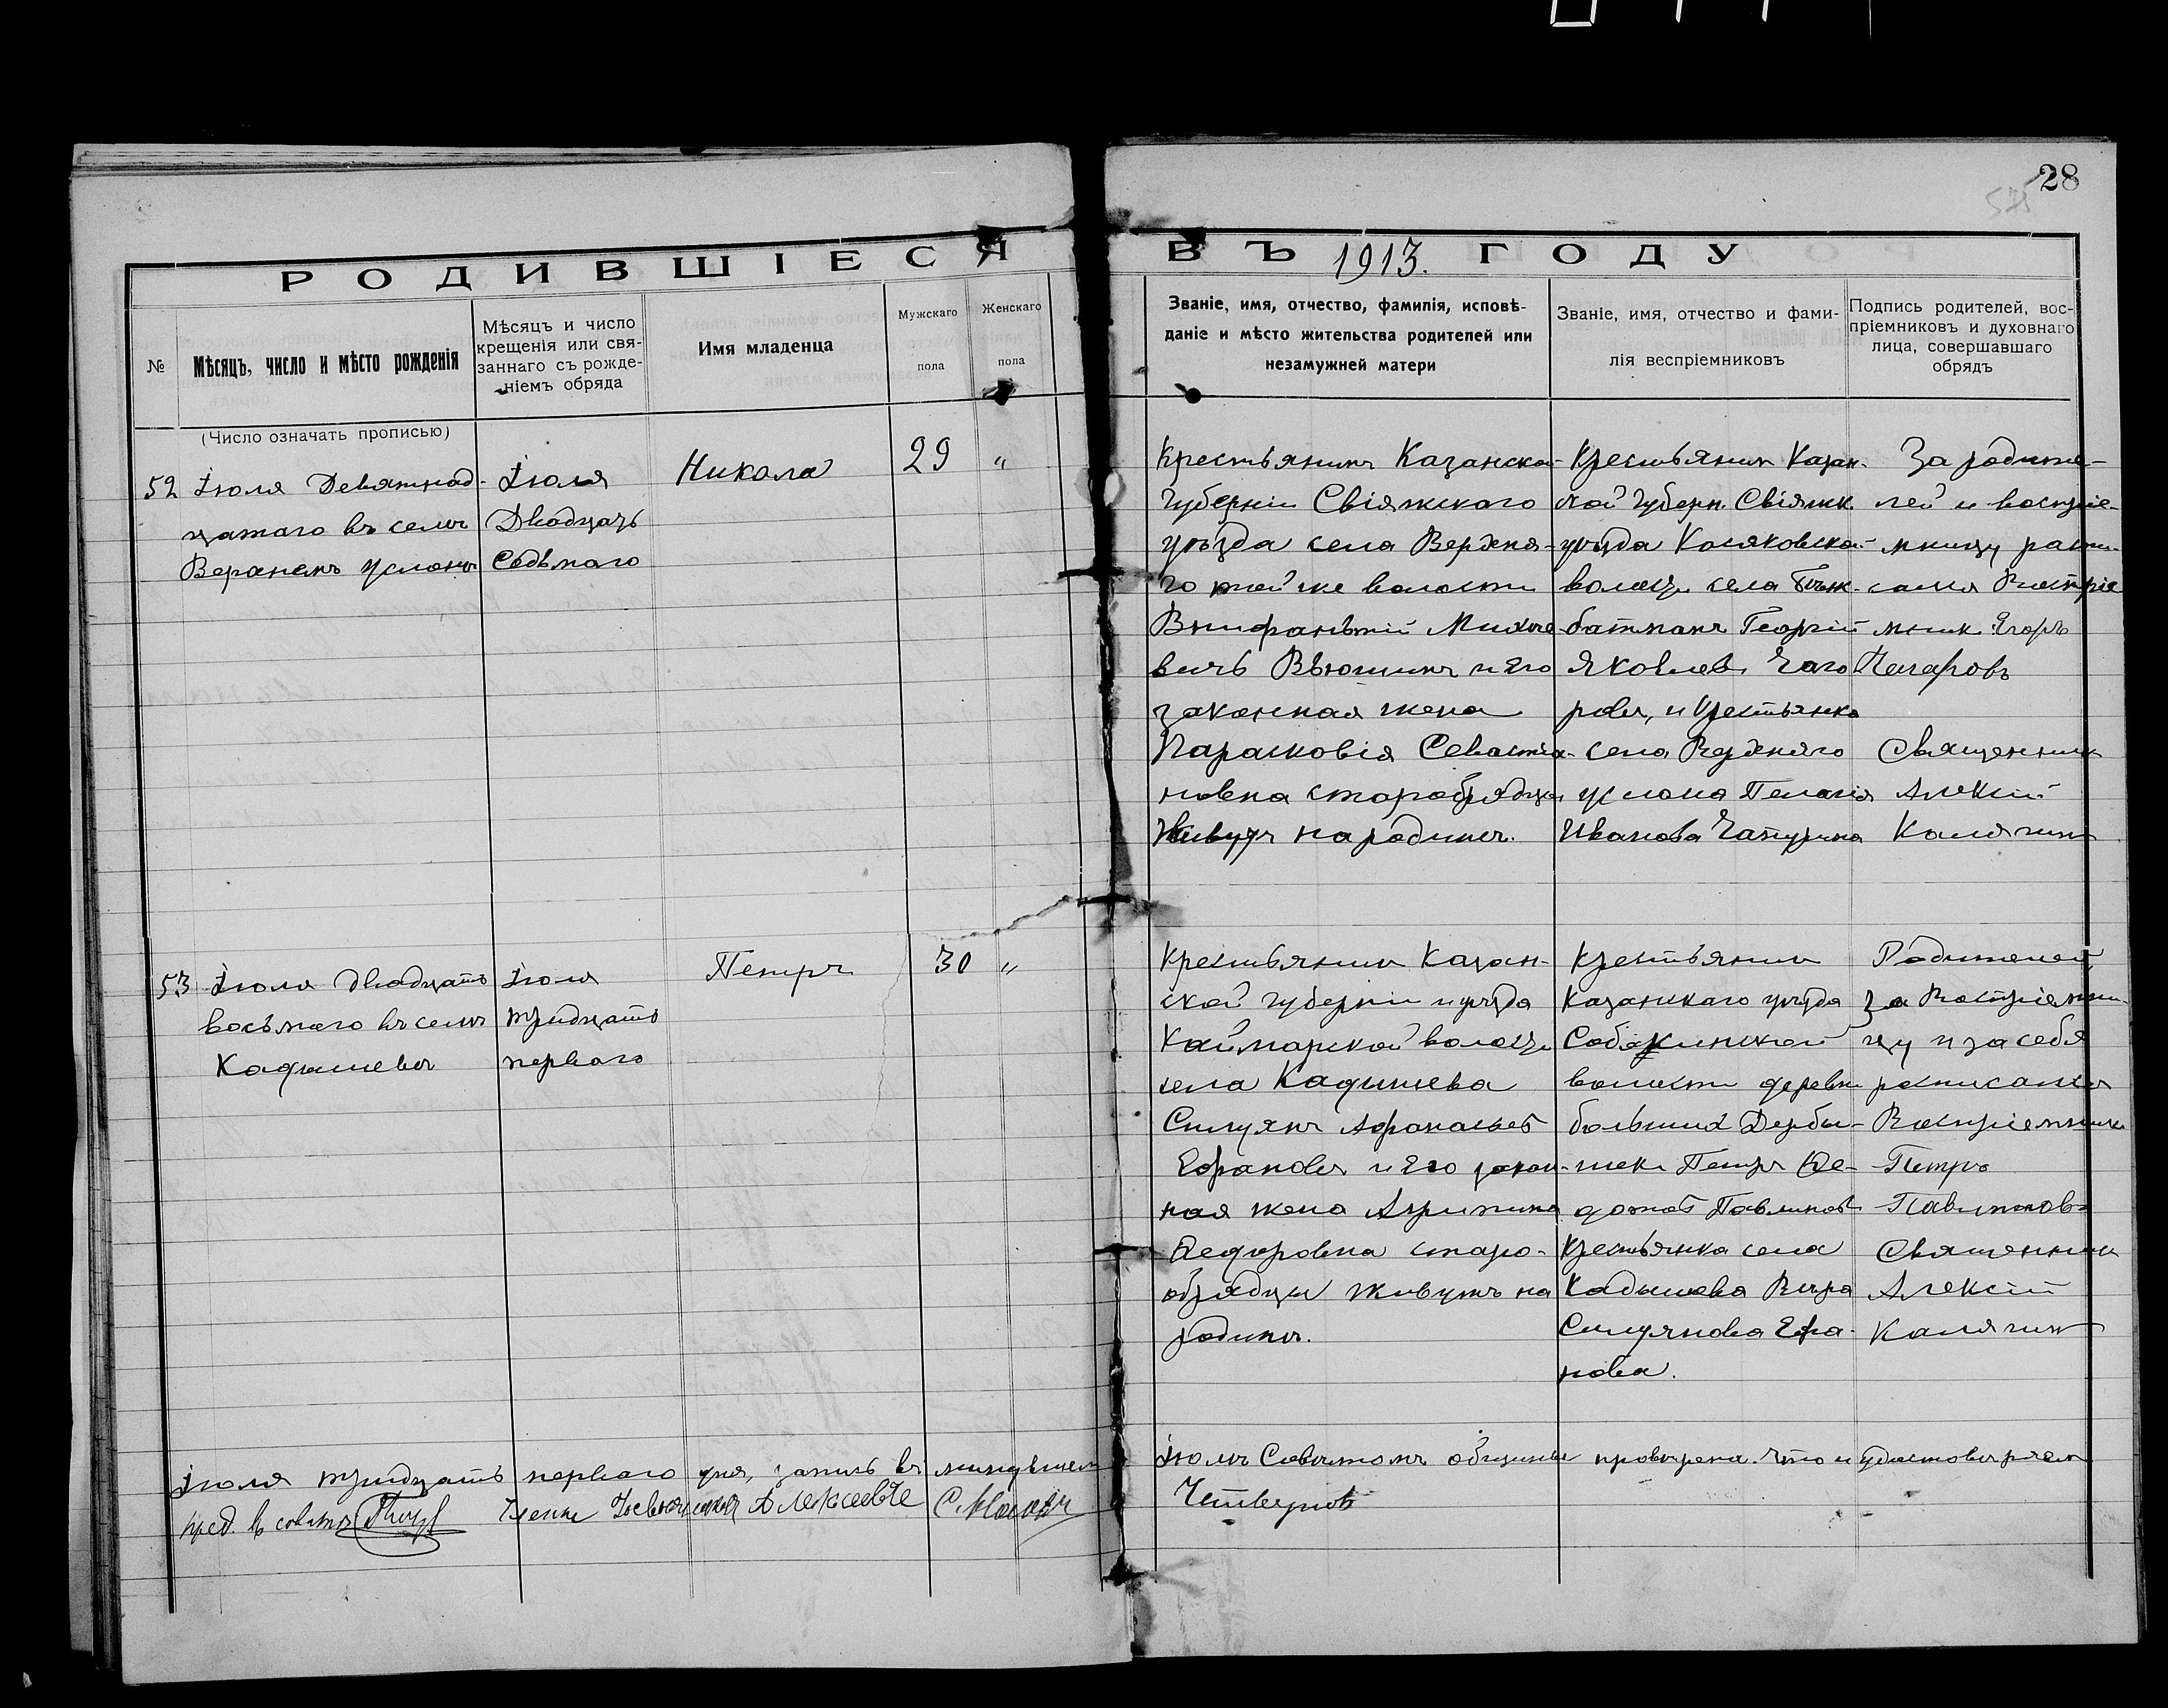 28
РОДИВШІЕСЯ ВЪ 1913. ГОДУ
№
Мѣсяцъ, число и мѣсто рожденія
Мѣсяцъ и число
крещенія или свя-
заннаго съ рожде-
ніемъ обряда
Имя младенца
Мужскаго
пола
Женскаго
пола
Званіе, имя, отчество, фамилія, исповѣ-
даніе и мѣсто жительства родителей или
незамужней матери
Званіе, имя, отчество и фами-
лія веспріемниковъ
Подпись родителей, вос-
пріемниковъ и духовнаго
лица, совершавшаго
обрядъ
(Число означать прописью)
52
Іюля Девятнад-
цатаго въ селѣ
Верхнемъ Услонѣ
Іюля
Двадцать
Седьмаго
Никола
29
"
Крестьянинъ Казанской
Губерніи Свіяжскаго
уѣзда села Верхня-
го той же волости
Михее-
вичъ Вьюшинъ и Его
законная жена
Парасковія Севастіа-
новна старобрядцы
Живутъ на родинѣ.
Крестьянинъ Казан-
ской Губерн. Свіяжск.
уѣзда
волости села
Георгій
Яковлевъ
ровъ, и Крестьянка
села Верхняго
Услона Пелагія
Иванова Чапурина
За родите-
лей и воспріе-
мницу распи-
сался Воспріе
мникъ Егоръ
Священникъ
Алексій
Калягинъ
53
Іюля двадцать
восьмаго въ селѣ
Кадышевѣ
Іюля
тридцать
перваго
Петръ
30
"
Крестьянинъ Казан-
ской Губерніи и уѣзда
Каймарской волости
села Кадышева
Силуянъ Афанасьев
Ефановъ и Его закон-
ная жена Агрипина
Федоровна старо-
обрядцы Живутъ на
родинѣ.
Крестьянинъ
Казанскаго уѣзда
Собакинской
волости деревни
большихъ Дербы-
шекъ Петръ Фе-
дотов Павлинов
Крестьянка села
Кадышева Вѣра
Силуянова Ефа-
нова.
Родителей,
за Воспріемни-
цу и за себя
росписался
Воспріемникъ
Петръ
Павлинов
Священникъ
Алексій
Калягинъ
Іюля тридцать перваго дня, запись въ минувшемъ Іюлѣ Совѣтомъ общины провѣрена. Что и удостовѣряемъ
Пред. въ совѣтѣ Члены Алексѣевъ